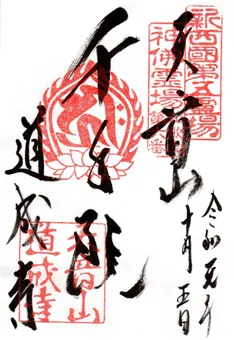 新西國第五番霊場
神佛霊場
天音山
千手殿
道成寺
令和元年
十月五日
天音山
道成寺